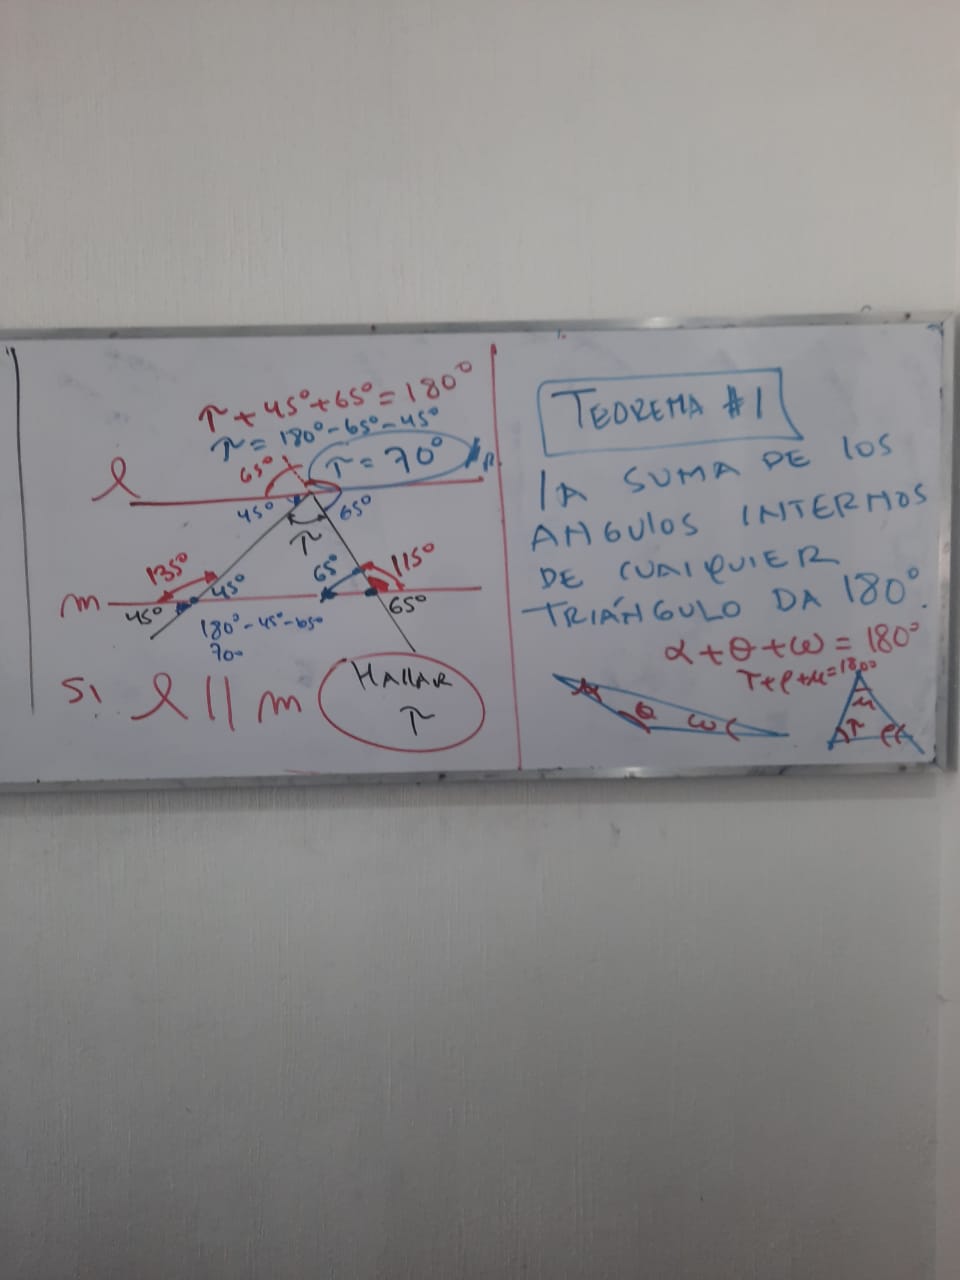 T + 45° + 65° = 180°
T = 180° - 65° - 45°
65°
T = 70°
l
45°
65°
T
135°
45°
65°
115°
m
45°
65°
180° - 45° - 65°
70°
Si l || m
HALLAR
T
TEOREMA #1
LA SUMA DE LOS
ANGULOS INTERNOS
DE CUALQUIER
TRIÁNGULO DA 180°.
α + θ + ω = 180°
T + ρ + μ = 180°
θ
ω
μ
T
ρ